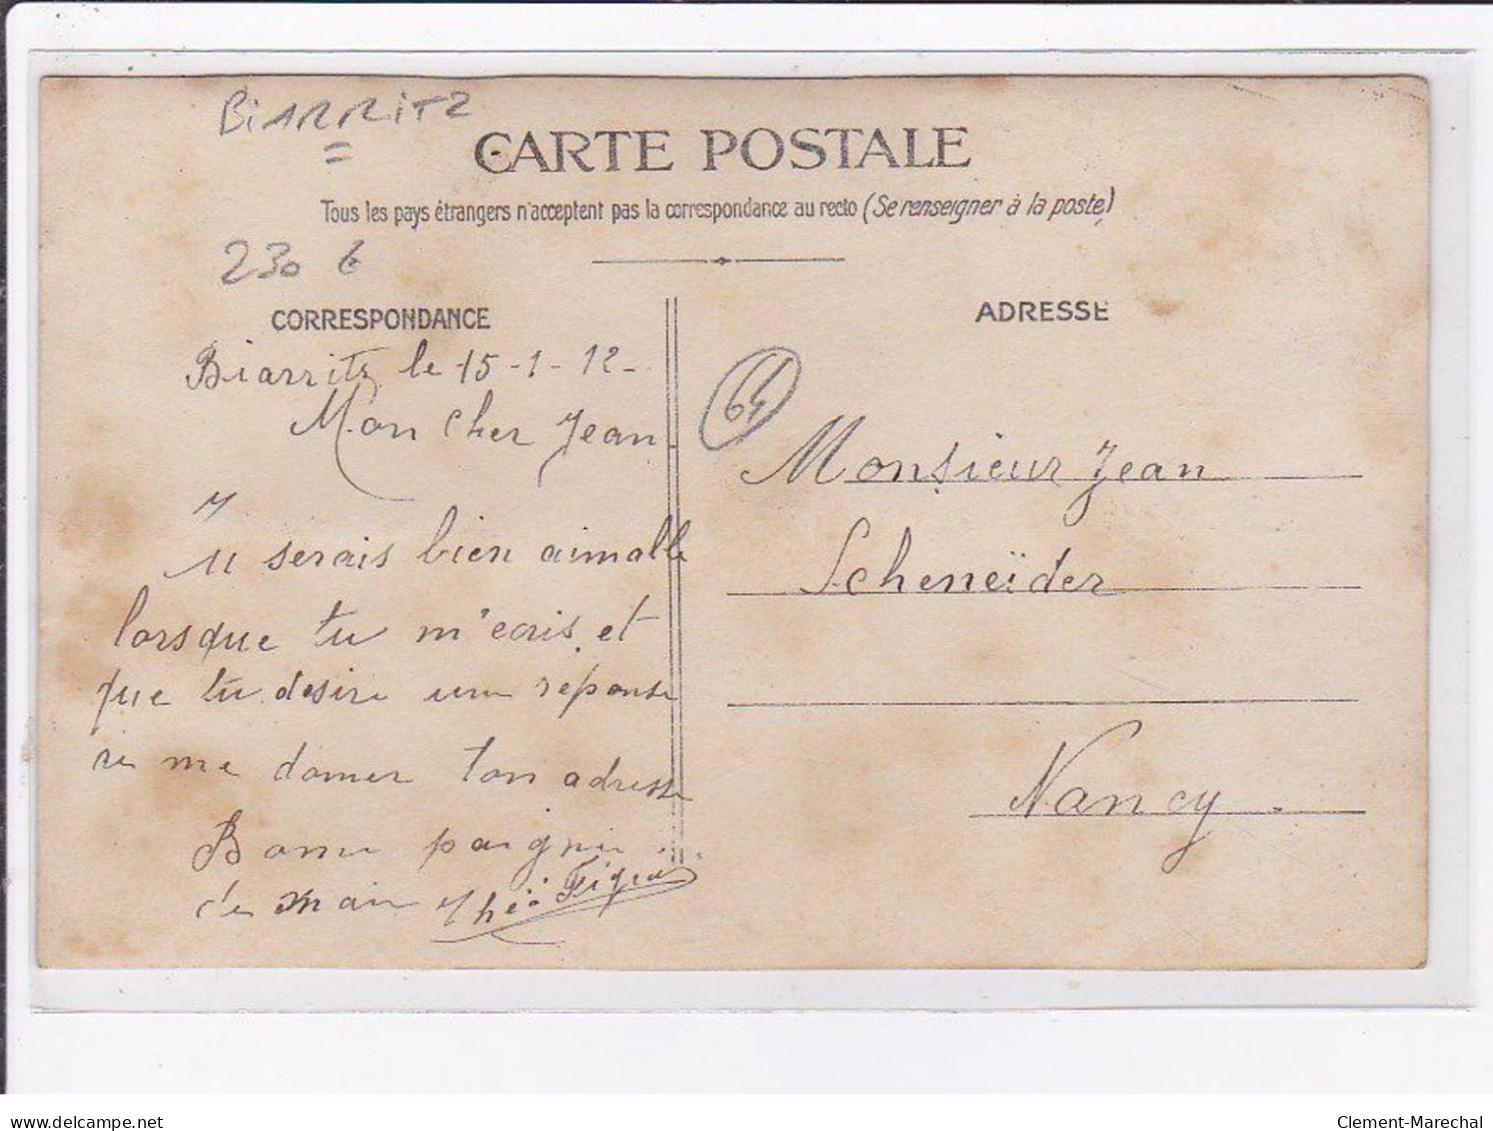 BIARRITZ
CARTE POSTALE
Tous les pays étrangers n'acceptent pas la correspondance au recto (Se renseigner à la poste)
230 €
CORRESPONDANCE
Biarritz le 15-1-12-
Mon Cher Jean
Tu serais bien aimable
lorsque tu m'ecris et
que tu desire une réponse
de me donner ton adresse
Bonne poignée
de main Théo
ADRESSE
64
Monsieur Jean
Scheneïder
Nancy.
delcampe.net
Clement-Marechal